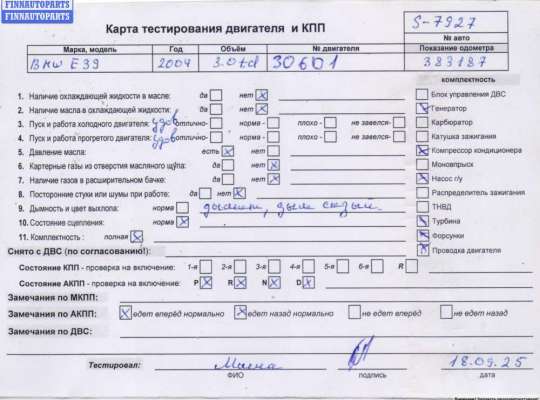 FINNAUTOPARTS
FINNAUTOPARTS
Карта тестирования двигателя и КПП
S-7927
№ авто
Марка, модель Год Объём № двигателя Показание одометра
BMW E39 2004 3.0td 30601 383187
комплектность
1. Наличие охлаждающей жидкости в масле: да нет Блок управления ДВС
2. Наличие масла в охлаждающей жидкости: да нет Генератор
3. Пуск и работа холодного двигателя: удов отлично- норма - плохо - не завелся- Карбюратор
4. Пуск и работа прогретого двигателя: удов отлично- норма - плохо - не завелся- Катушка зажигания
5. Давление масла: есть нет Компрессор кондиционера
6. Картерные газы из отверстия масляного щупа: да нет Моновпрыск
7. Наличие газов в расширительном бачке: да нет Насос г/у
8. Посторонние стуки или шумы при работе: да нет Распределитель зажигания
9. Дымность и цвет выхлопа: норма дымит, дым сизый ТНВД
10. Состояние сцепления: норма Турбина
11. Комплектность : полная Форсунки
Снято с ДВС (по согласованию!): Проводка двигателя
Состояние КПП - проверка на включение: 1-я 2-я 3-я 4-я 5-я 6-я R
Состояние АКПП - проверка на включение: P R N D
Замечания по МКПП:
Замечания по АКПП: едет вперёд нормально едет назад нормально не едет вперёд не едет назад
Замечания по ДВС:
Тестировал: 18.09.25
ФИО подпись дата